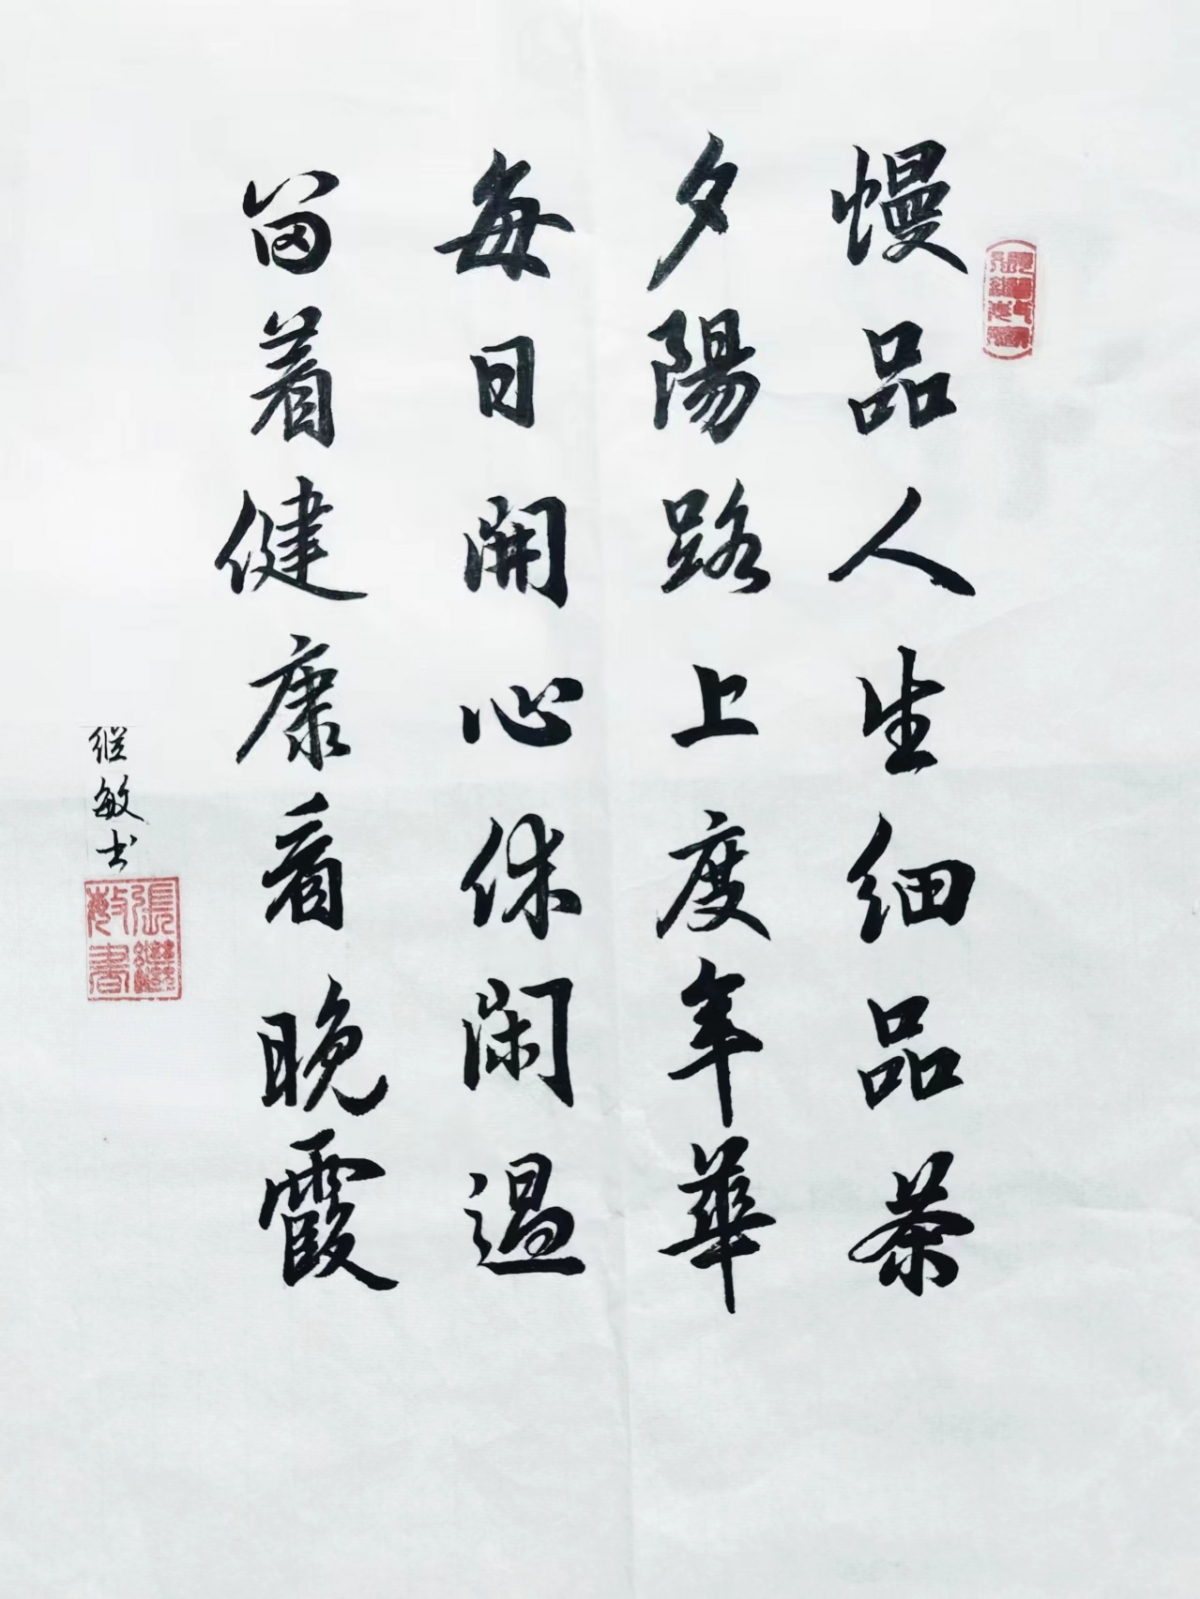 慢品人生細品茶
夕陽路上度年華
每日開心休閑過
留着健康看晚霞
继敏书
張繼敏書